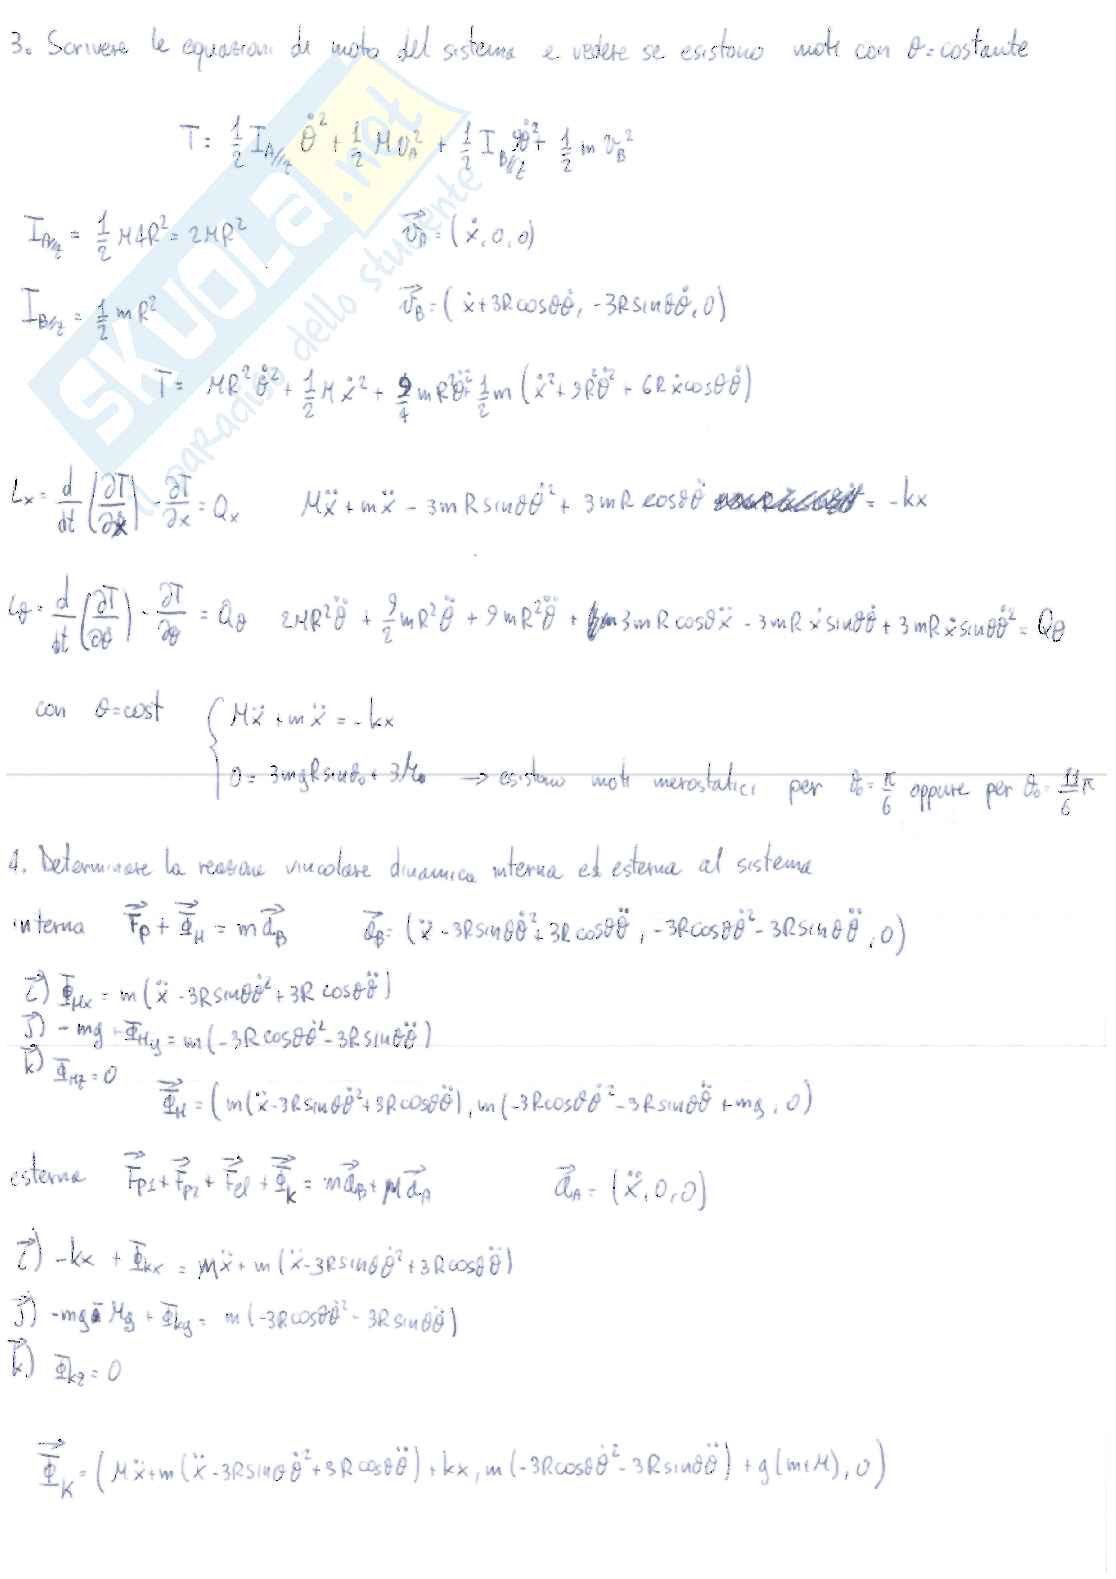 3. Scrivere le equazioni di moto del sistema e vedere se esistono moti con θ=costante
T = 1/2 I_{A//z} θ̇² + 1/2 M v_A² + 1/2 I_{B//z} 9θ̇² + 1/2 m v_B²
I_{A//z} = 1/2 M4R² = 2MR²   v⃗_A = (ẋ, 0, 0)
I_{B//z} = 1/2 mR²   v⃗_B = (ẋ+3Rcosθθ̇, -3Rsinθθ̇, 0)
T = MR²θ̇² + 1/2 Mẋ² + 9/4 mR²θ̇² + 1/2 m (ẋ² + 9R²θ̇² + 6Rẋcosθθ̇)
L_x = d/dt (∂T/∂ẋ) - ∂T/∂x = Q_x   Mẍ + mẍ - 3mRsinθθ̇² + 3mRcosθθ̈ = -kx
L_θ = d/dt (∂T/∂θ̇) - ∂T/∂θ = Q_θ   2MR²θ̈ + 9/2 mR²θ̈ + 9mR²θ̈ + 3mRcosθẍ - 3mRẋsinθθ̇ + 3mRẋsinθθ̇² = Q_θ
con θ=cost   { Mẍ + mẍ = -kx
0 = 3mgRsinθ₀ + 3M₀ → esistono moti merostatici per θ₀ = π/6 oppure per θ₀ = 11/6 π
4. Determinare la reazione vincolare dinamica interna ed esterna al sistema
interna   F⃗_P + Φ⃗_H = m a⃗_B   a⃗_B = (ẍ - 3Rsinθθ̇² + 3Rcosθθ̈, -3Rcosθθ̇² - 3Rsinθθ̈, 0)
i⃗) Φ_Hx = m(ẍ - 3Rsinθθ̇² + 3Rcosθθ̈)
j⃗) -mg + Φ_Hy = m(-3Rcosθθ̇² - 3Rsinθθ̈)
k⃗) Φ_Hz = 0
Φ⃗_H = (m(ẍ - 3Rsinθθ̇² + 3Rcosθθ̈), m(-3Rcosθθ̇² - 3Rsinθθ̈ + mg, 0)
esterna   F⃗_P1 + F⃗_P2 + F⃗_el + Φ⃗_K = m a⃗_B + M a⃗_A   a⃗_A = (ẍ, 0, 0)
i⃗) -kx + Φ_Kx = Mẍ + m(ẍ - 3Rsinθθ̇² + 3Rcosθθ̈)
j⃗) -mg - Mg + Φ_Ky = m(-3Rcosθθ̇² - 3Rsinθθ̈)
k⃗) Φ_Kz = 0
Φ⃗_K = (Mẍ + m(ẍ - 3Rsinθθ̇² + 3Rcosθθ̈) + kx, m(-3Rcosθθ̇² - 3Rsinθθ̈) + g(m+M), 0)
SKUOLA.net
il paradiso dello studente